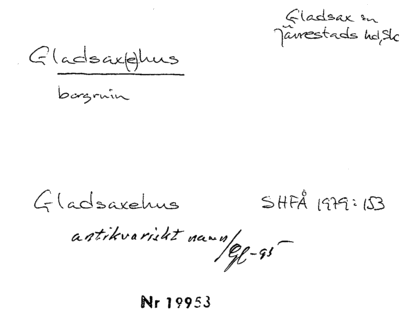 Gladsax sn
Järrestads hd, Sk
Gladsax(e)hus
borgruin
Gladsaxehus SHFÅ 1979:153
antikvariskt namn
Nr 19953